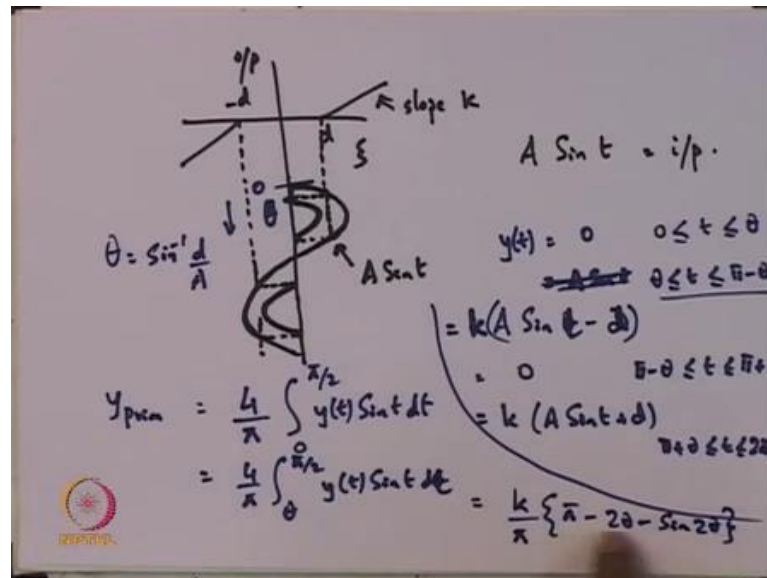 o/p
-d
slope k
d
ξ
A Sin t = i/p.
0
θ
θ = Sin⁻¹ d/A
A Sin t
y(t) = 0 0 ≤ t ≤ θ
θ ≤ t ≤ π-θ
= k(A Sin t - d)
= 0 π-θ ≤ t ≤ π+
= k (A Sin t + d)
π+θ ≤ t ≤ 2π
= 4/π ∫₀^π/2 y(t) Sin t dt
= 4/π ∫θ^π/2 y(t) Sin t dt = k/π {π - 2θ - Sin 2θ}
NPTEL